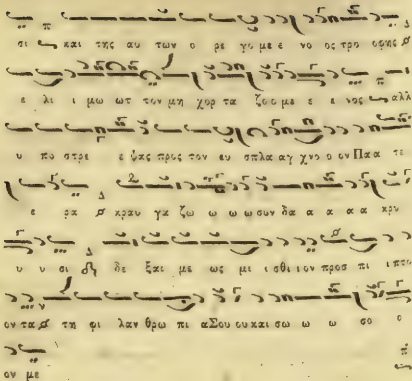 σι και της αυ των ο ρε γο με ε νος τρο φης
ε λι ι μω ωτ τον μη χορ τα ζο ο με ε ε νος αλλ
υ πο στρε ε ψας προς τον ευ σπλα αγ χνο ο ον Πα α τε
ε ρα κραυ γα ζω ω ω ω συν δα α α α α κρυ
υ υ σι δε ξαι με ως μι ι σθι ι ον προσ πι ι πτο
ον τα τη φι λαν θρω πι α Σου ου και σω ω ω σο ο
ον με